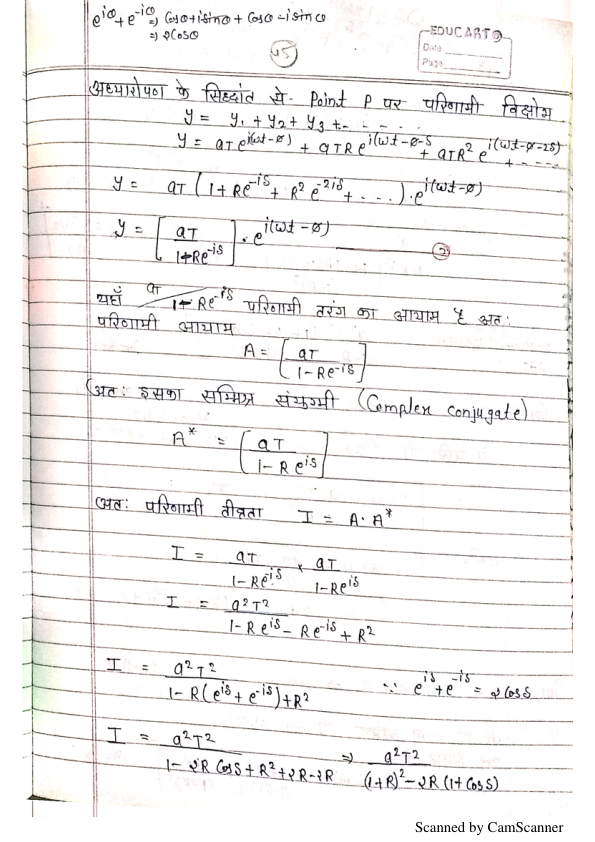 e^{iθ} + e^{-iθ} ⇒ Cosθ + isinθ + Cosθ - isinθ
⇒ 2Cosθ
EDUCART
Date
Page
अध्यारोपण के सिद्धांत से- Point P पर परिणामी विक्षोभ
y = y₁ + y₂ + y₃ + - - - - -
y = aTe^{i(ωt-ø)} + aTRe^{i(ωt-ø-δ} + aTR² e^{i(ωt-ø-2δ)} + - - - -
y = aT (1 + Re^{-iδ} + R² e^{-2iδ} + . . . ) . e^{i(ωt-ø)}
y = [aT / 1-Re^{-iδ}] . e^{i(ωt-ø)} ——— ②
यहाँ aT / 1-Re^{-iδ} परिणामी तरंग का आयाम है अतः
परिणामी आयाम
A = [aT / 1-Re^{-iδ}]
अतः इसका सम्मिश्र संयुग्मी (Complex conjugate)
A* = [aT / 1-Re^{iδ}]
अतः परिणामी तीव्रता I = A. A*
I = aT / 1-Re^{iδ} × aT / 1-Re^{iδ}
I = a²T² / 1-Re^{iδ} - Re^{-iδ} + R²
I = a²T² / 1-R(e^{iδ} + e^{-iδ}) + R² ∵ e^{iδ} + e^{-iδ} = 2Cosδ
I = a²T² / 1-2R Cosδ + R² + 2R - 2R ⇒ a²T² / (1+R)² - 2R (1+Cosδ)
Scanned by CamScanner